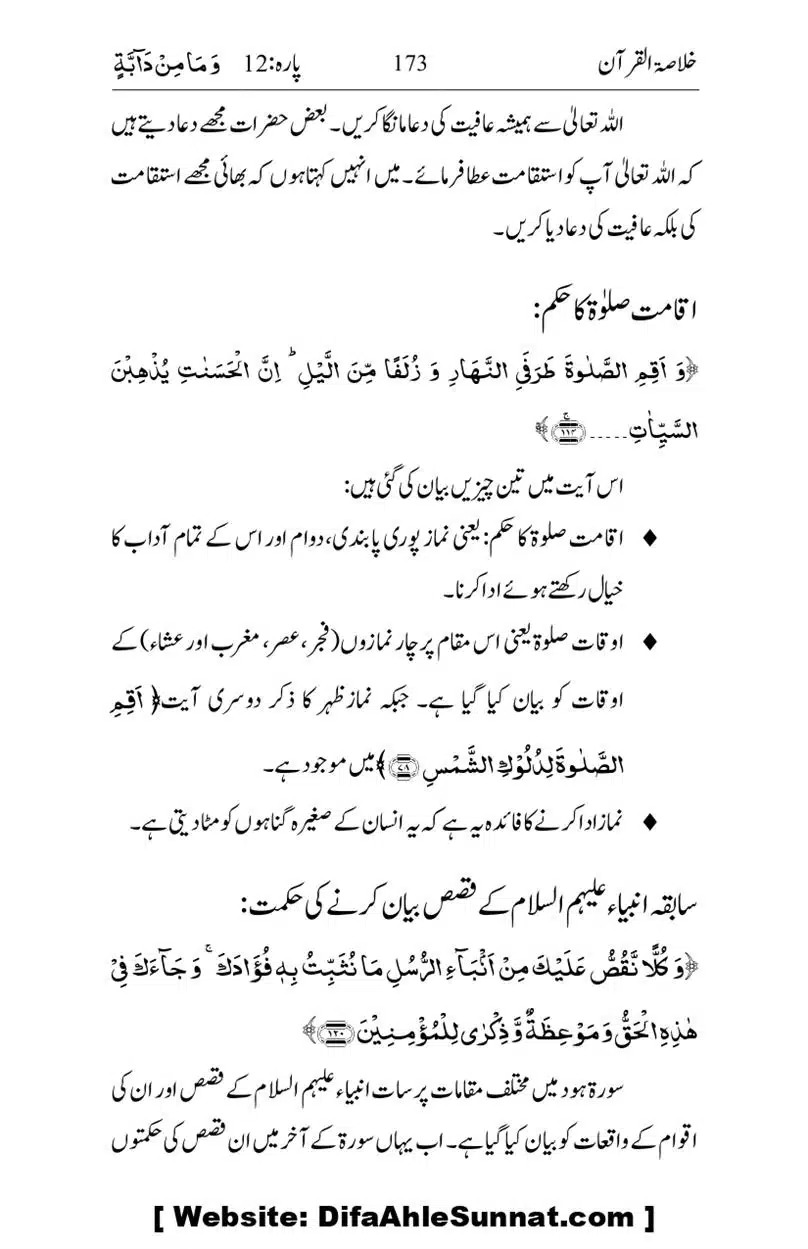 خلاصۃ القرآن 173 پارہ:12 وَ مَا مِنْ دَآبَّةٍ
اللہ تعالیٰ سے ہمیشہ عافیت کی دعا مانگا کریں۔ بعض حضرات مجھے دعا دیتے ہیں
کہ اللہ تعالیٰ آپ کو استقامت عطا فرمائے۔ میں انہیں کہتا ہوں کہ بھائی مجھے استقامت
کی بلکہ عافیت کی دعا دیا کریں۔
اقامت صلوٰۃ کا حکم:
﴿وَ اَقِمِ الصَّلٰوةَ طَرَفَیِ النَّهَارِ وَ زُلَفًا مِّنَ الَّیْلِ ؕ اِنَّ الْحَسَنٰتِ یُذْهِبْنَ
السَّیِّاٰتِ ..... ﴿۱۱۴﴾ۚ﴾
اس آیت میں تین چیزیں بیان کی گئی ہیں:
♦ اقامت صلوۃ کا حکم: یعنی نماز پوری پابندی، دوام اور اس کے تمام آداب کا
خیال رکھتے ہوئے ادا کرنا۔
♦ اوقات صلوۃ یعنی اس مقام پر چار نمازوں (فجر، عصر، مغرب اور عشاء) کے
اوقات کو بیان کیا گیا ہے۔ جبکہ نماز ظہر کا ذکر دوسری آیت ﴿ اَقِمِ
الصَّلٰوةَ لِدُلُوْكِ الشَّمْسِ ﴿۷۸﴾﴾ میں موجود ہے۔
♦ نماز ادا کرنے کا فائدہ یہ ہے کہ یہ انسان کے صغیرہ گناہوں کو مٹا دیتی ہے۔
سابقہ انبیاء علیہم السلام کے قصص بیان کرنے کی حکمت:
﴿وَ كُلًّا نَّقُصُّ عَلَیْكَ مِنْ اَنْۢبَآءِ الرُّسُلِ مَا نُثَبِّتُ بِهٖ فُؤَادَكَ ۚ وَ جَآءَكَ فِیْ
هٰذِهِ الْحَقُّ وَ مَوْعِظَةٌ وَّ ذِكْرٰی لِلْمُؤْمِنِیْنَ ﴿۱۲۰﴾﴾
سورۃ ہود میں مختلف مقامات پر سات انبیاء علیہم السلام کے قصص اور ان کی
اقوام کے واقعات کو بیان کیا گیا ہے۔ اب یہاں سورۃ کے آخر میں ان قصص کی حکمتوں
[ Website: DifaAhleSunnat.com ]